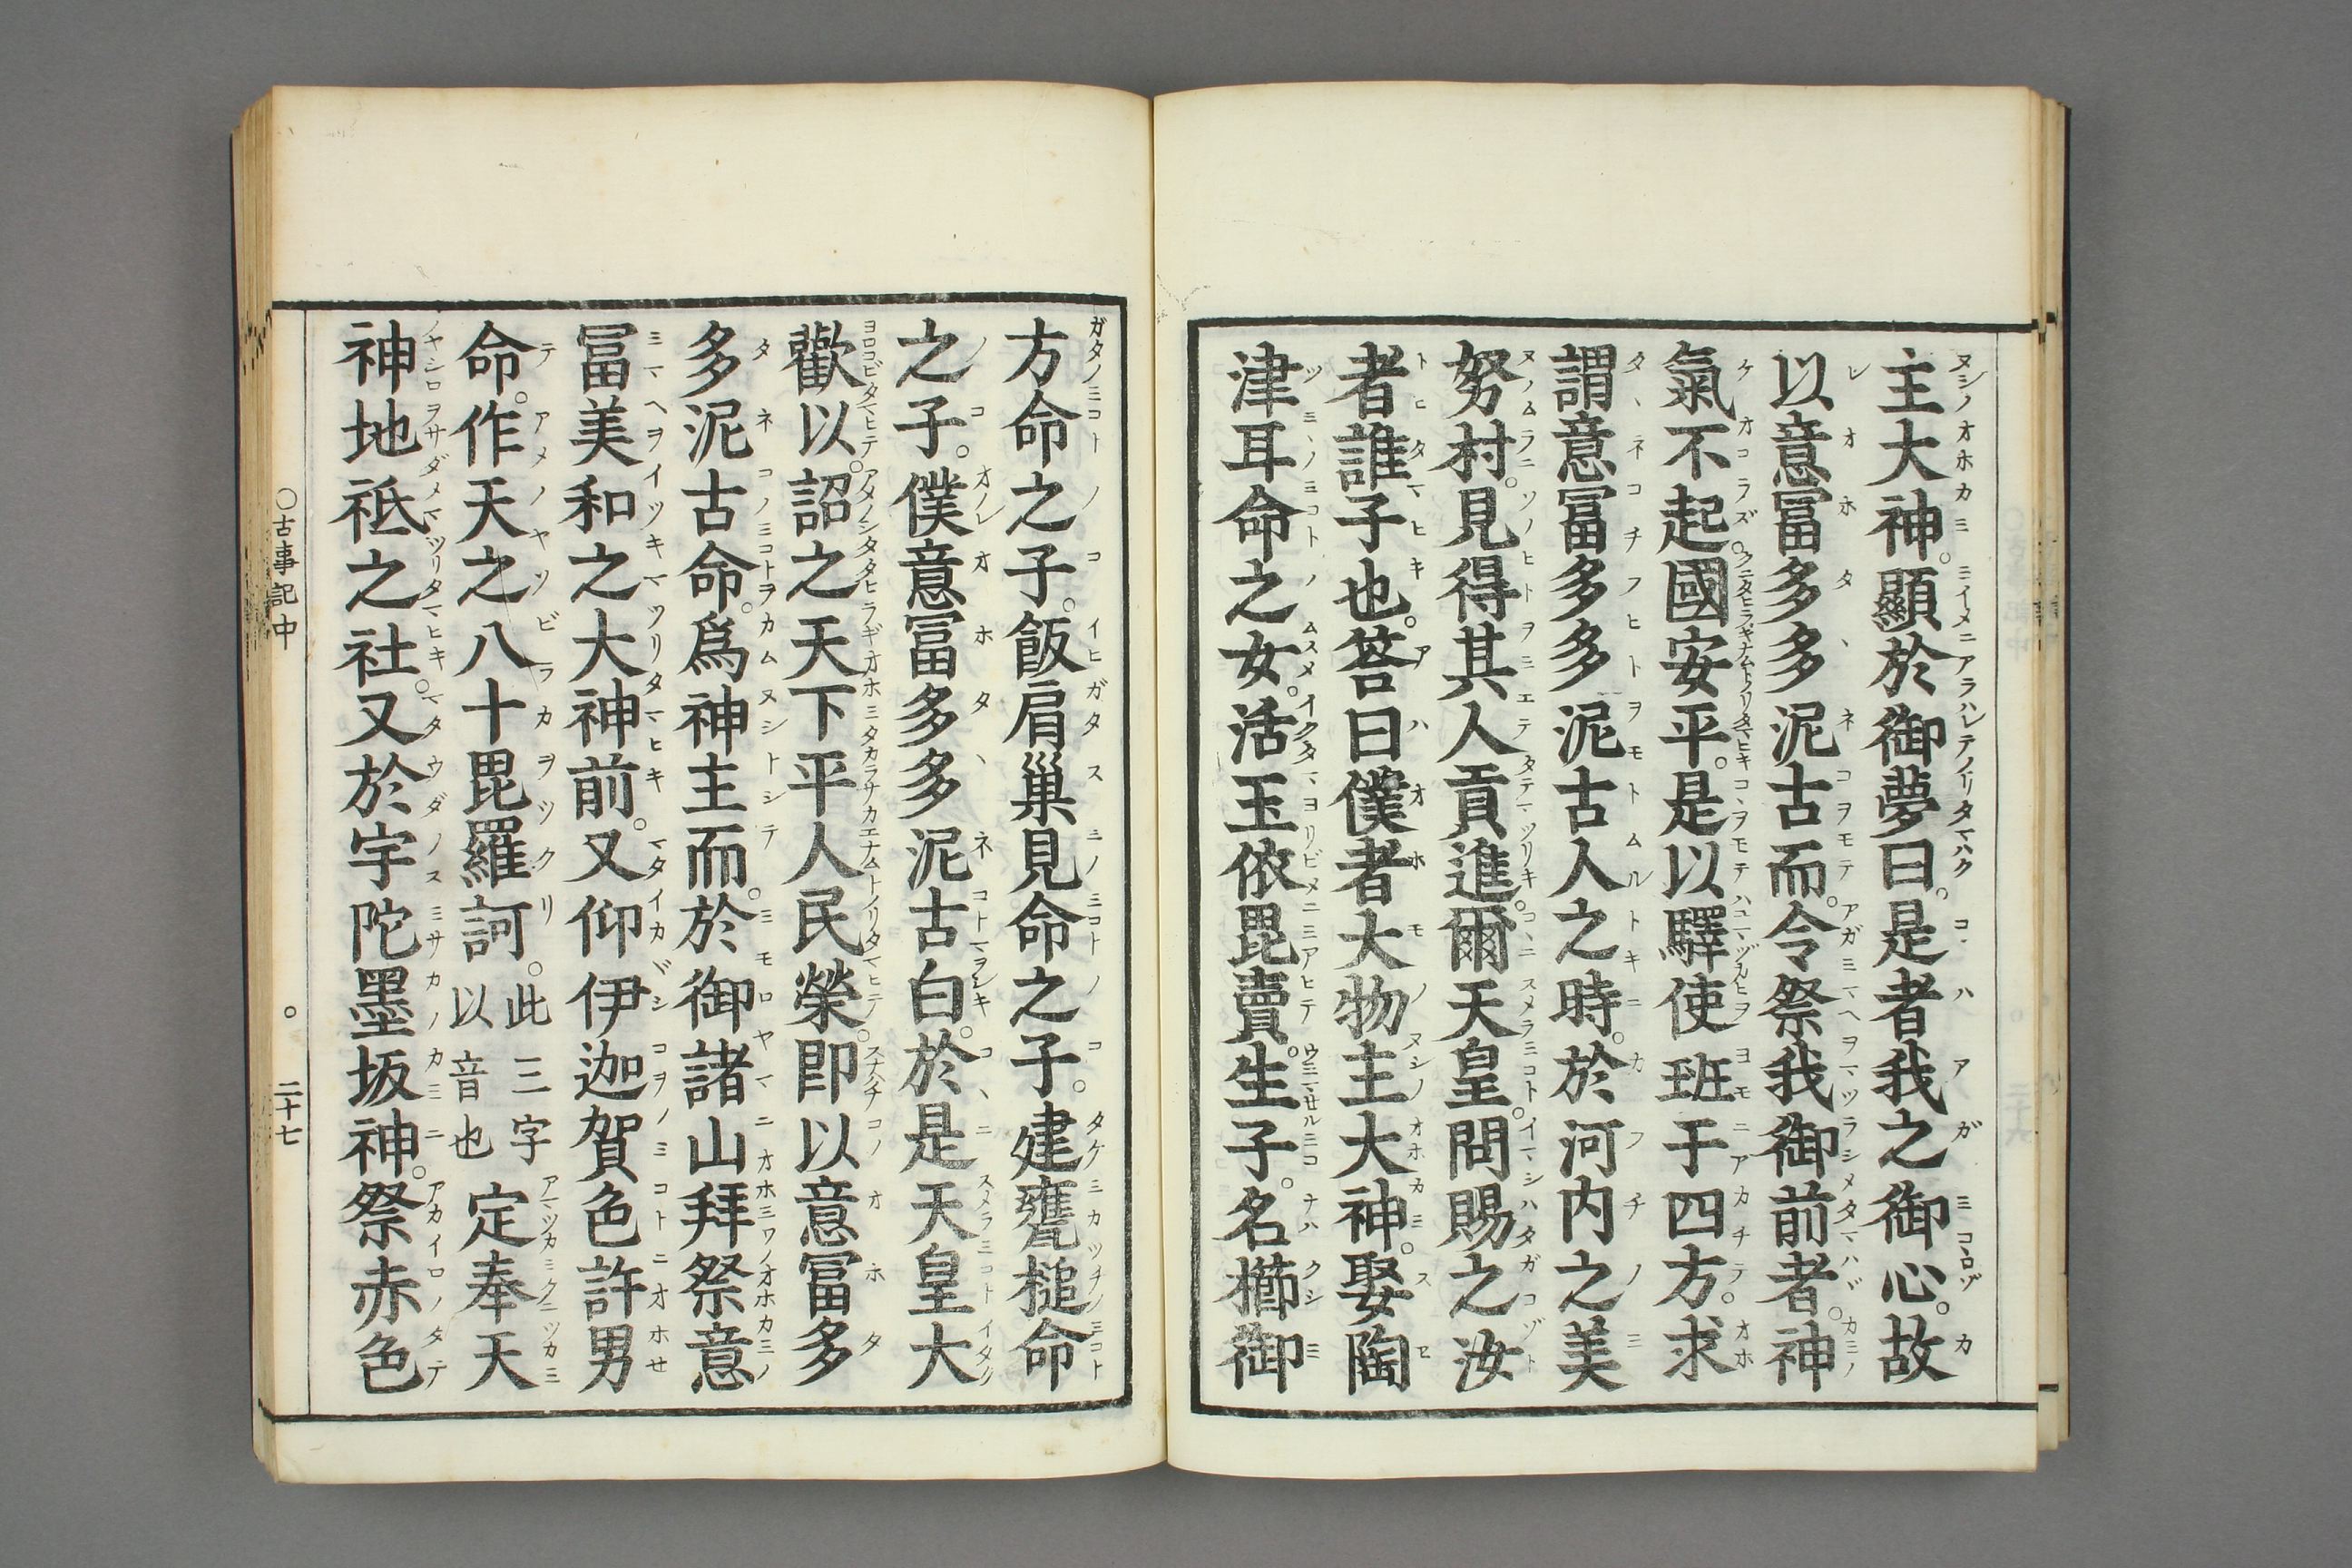 主大神。顯於御夢曰。是者我之御心。故
以意冨多多泥古而。令祭我御前者。神
氣不起。國安平。是以驛使班于四方。求
謂意冨多多泥古人之時。於河内之美
努村。見得其人貢進。爾天皇。問賜之汝
者誰子也。答曰僕者大物主大神。娶陶
津耳命之女。活玉依毘賣。生子。名櫛御
方命之子。飯肩巢見命之子。建甕槌命
之子。僕意冨多多泥古白。於是天皇大
歡以。詔之天下平人民榮。即以意冨多
多泥古命。爲神主而。於御諸山拜祭意
冨美和之大神前。又仰伊迦賀色許男
命。作天之八十毘羅訶。此三字以音也定奉天
神地祇之社。又於宇陀墨坂神。祭赤色
〇古事記中 〇 二十七